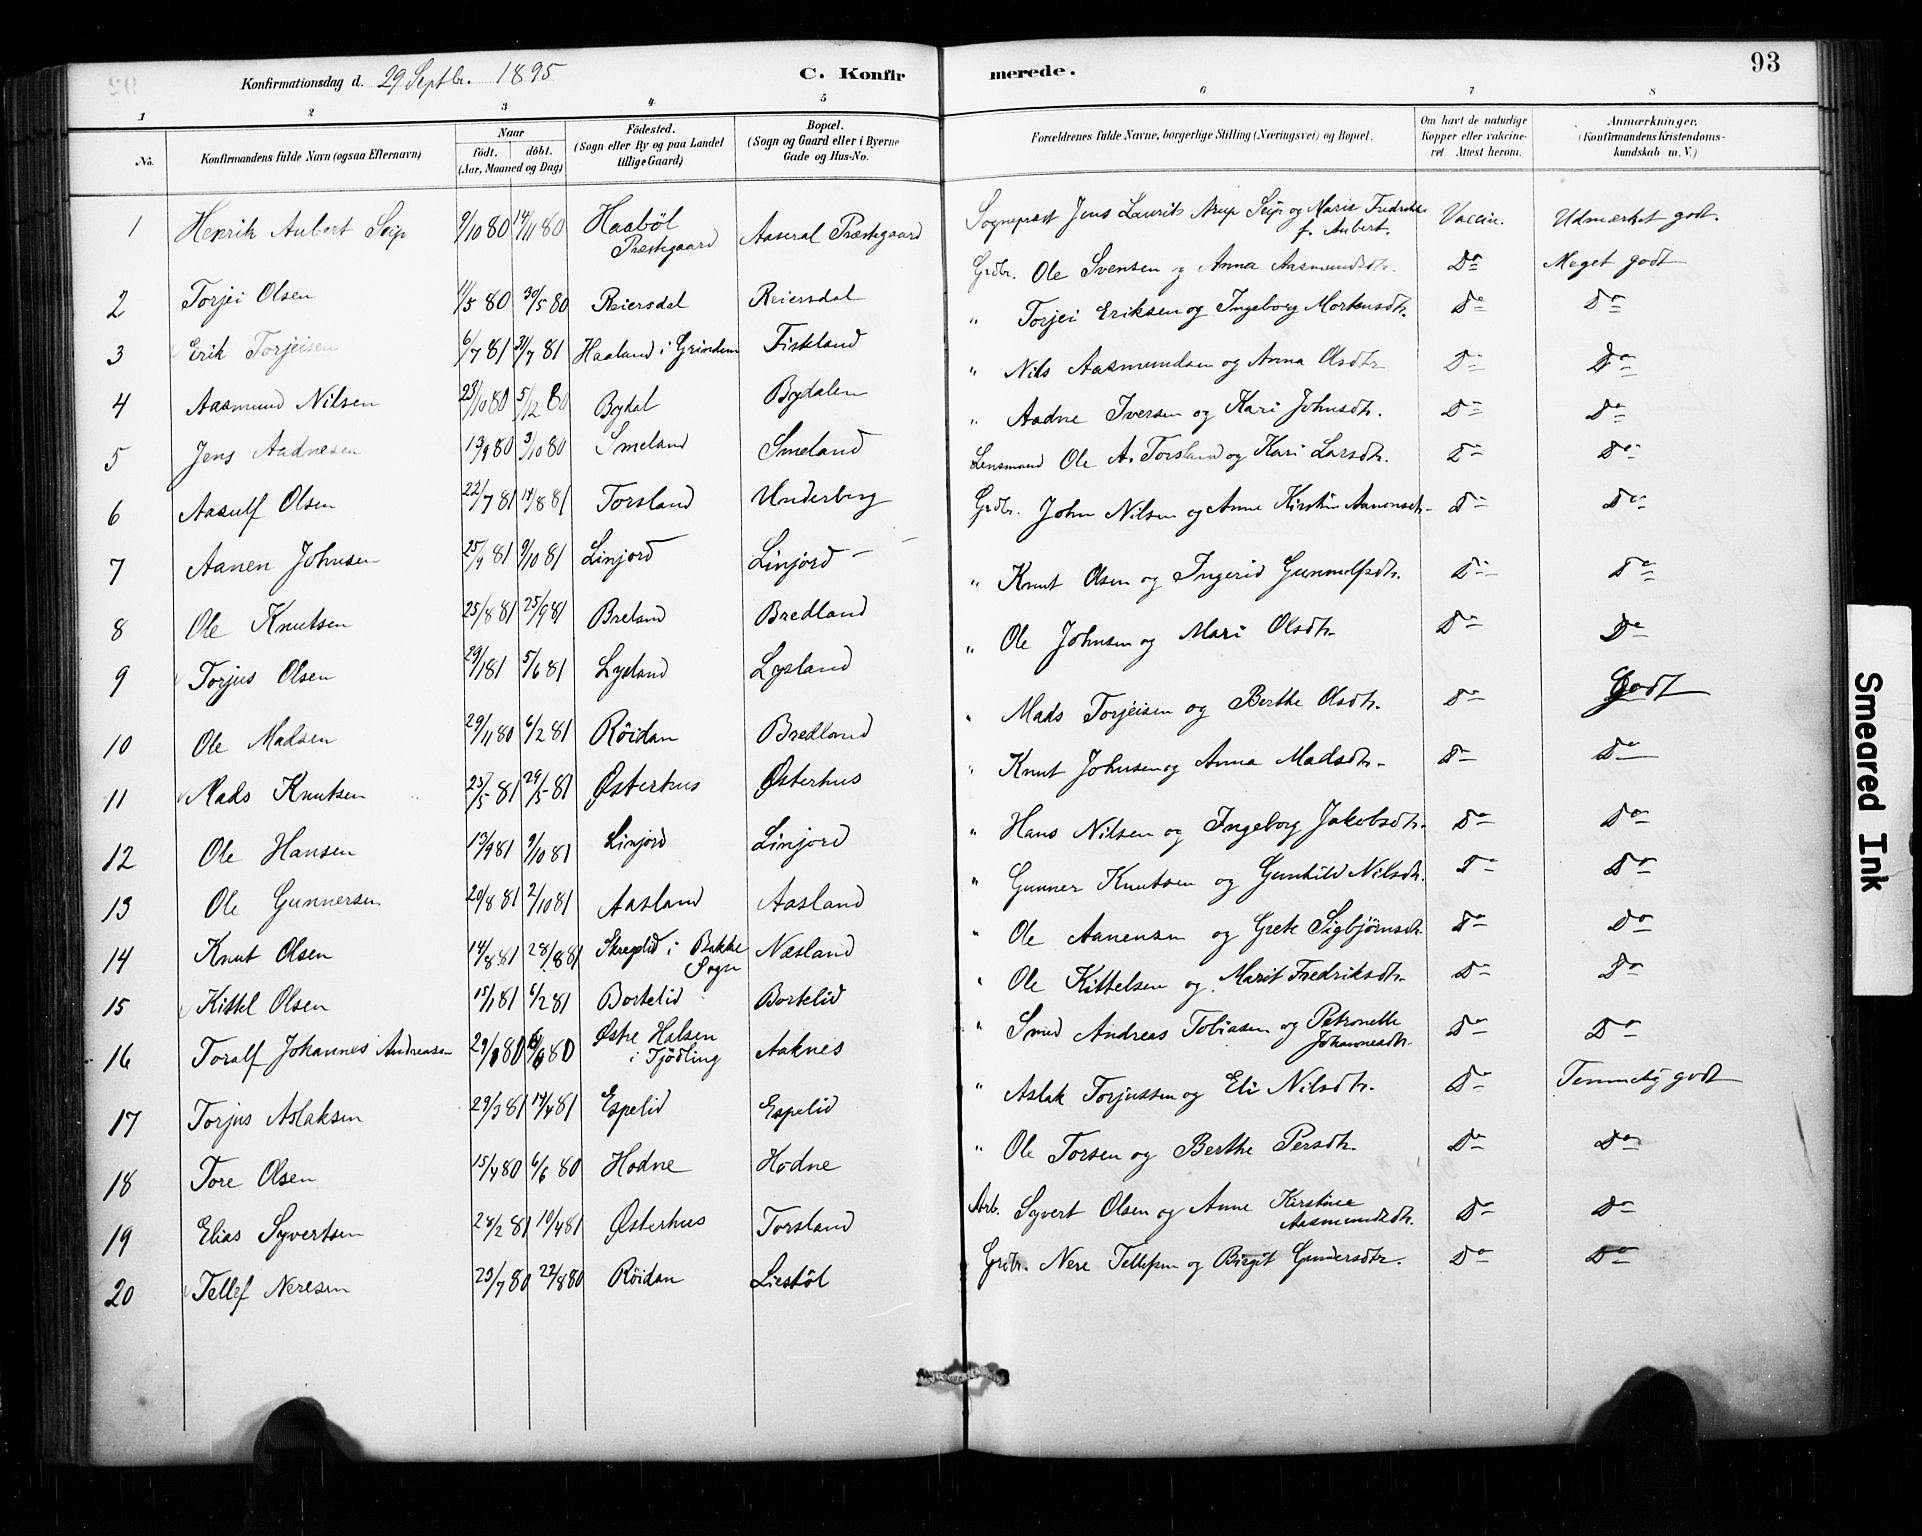 93
Konfirmationsdag d. 29 Septbr. 1895
C. Konfirmerede.
1 2 3 4 5 6 7 8
No.
Konfirmandens fulde Navn (ogsaa Efternavn)
Naar
födt. döbt.
(Aar, Maaned og Dag)
Födested.
(Sogn eller By og paa Landet
tillige Gaard)
Bopæl.
(Sogn og Gaard eller i Byerne
Gade og Hus-No.
Forældrenes fulde Navne, borgerlige Stilling (Næringsvei) og Bopæl.
Om havt de naturlige
Kopper eller vakcineret.
Attest herom.
Anmærkninger,
(Konfirmandens Kristendomskundskab
m. V.)
1 Henrik Aubert Seip 9/10 80 14/11 80 Haabøl Præstegaard Aaseral Præstegaard Sognepræst Jens Laurits Arup Seip og Marie Fredrikke f. Aubert. Vaccin. Udmærket godt.
2 Torjei Olsen 11/5 80 30/5 80 Reiersdal Reiersdal Grdbr. Ole Svensen og Anna Aasmundsdtr. Do Meget godt
3 Erik Torjeisen 6/7 81 31/7 81 Haaland i Grindem Fiskland " Torjei Eriksen og Ingeborg Mortensdtr. Do Do
4 Aasmund Nilsen 23/10 80 5/12 80 Bygdal Bygdalen " Nils Aasmundsen og Anna Olsdtr Do Do
5 Jens Aadnesen 13/9 80 3/10 80 Smeland Smeland " Aadne Iversen og Kari Johnsdtr. Do Do
6 Aasulf Olsen 22/7 81 14/8 81 Torsland Underberg Lensmand Ole A. Torsland og Kari Larsdtr. Do Do
7 Aanen Johnsen 25/9 81 9/10 81 Linjord Linjord Grdbr. John Nilsen og Anne Kirstin Aanonsdtr. Do Do
8 Ole Knutsen 25/8 81 25/9 81 Breland Bredland " Knut Olsen og Ingerid Gunnulfsdtr. Do Do
9 Torjus Olsen 29/1 81 5/6 81 Lysland Lysland " Ole Johnsen og Mari Olsdtr. Do Do
10 Ole Madsen 29/11 80 6/2 81 Röidan Bredland " Mads Torjeisen og Berthe Olsdtr. Do Godt
11 Mads Knutsen 25/5 81 29/5 81 Østerhus Østerhus " Knut Johnsen og Anna Madsdtr. Do Do
12 Ole Hansen 13/9 81 9/10 81 Linjord Linjord " Hans Nilsen og Ingeborg Jakobsdtr. Do Do
13 Ole Gunnersen 20/8 81 2/10 81 Aasland Aasland " Gunner Knutsen og Gunhild Nilsdtr. Do Do
14 Knut Olsen 14/8 81 28/8 81 Skregelid i Bakke Sogn Næsland " Ole Aanensen og Grete Sigbjørnsdtr. Do Do
15 Kittel Olsen 15/1 81 6/2 81 Bortelid Bortelid " Ole Kittelsen og Marit Fredriksdtr. Do Do
16 Toralf Johannes Andreasen 29/ 80 80 Østre Halsen i Tjödling Aaknes " Smed Andreas Tobiasen og Petronelle Johannesdtr. Do Do
17 Torjus Aslaksen 29/3 81 14/4 81 Espelid Espelid " Aslak Torjussen og Eli Nilsdtr. Do Temmelig godt
18 Tore Olsen 15/4 80 6/6 80 Hodne Hodne " Ole Torsen og Berthe Persdtr. Do Do
19 Elias Syvertsen 24/2 81 10/4 81 Østerhus Torsland Arb. Syvert Olsen og Anne Kirstine Aasmundsdtr. Do Do
20 Tellef Neresen 23/7 80 22/8 80 Röidan Liestöl Grdbr. Nere Tellefsen og Birgit Gundersdtr. Do Do
Smeared Ink